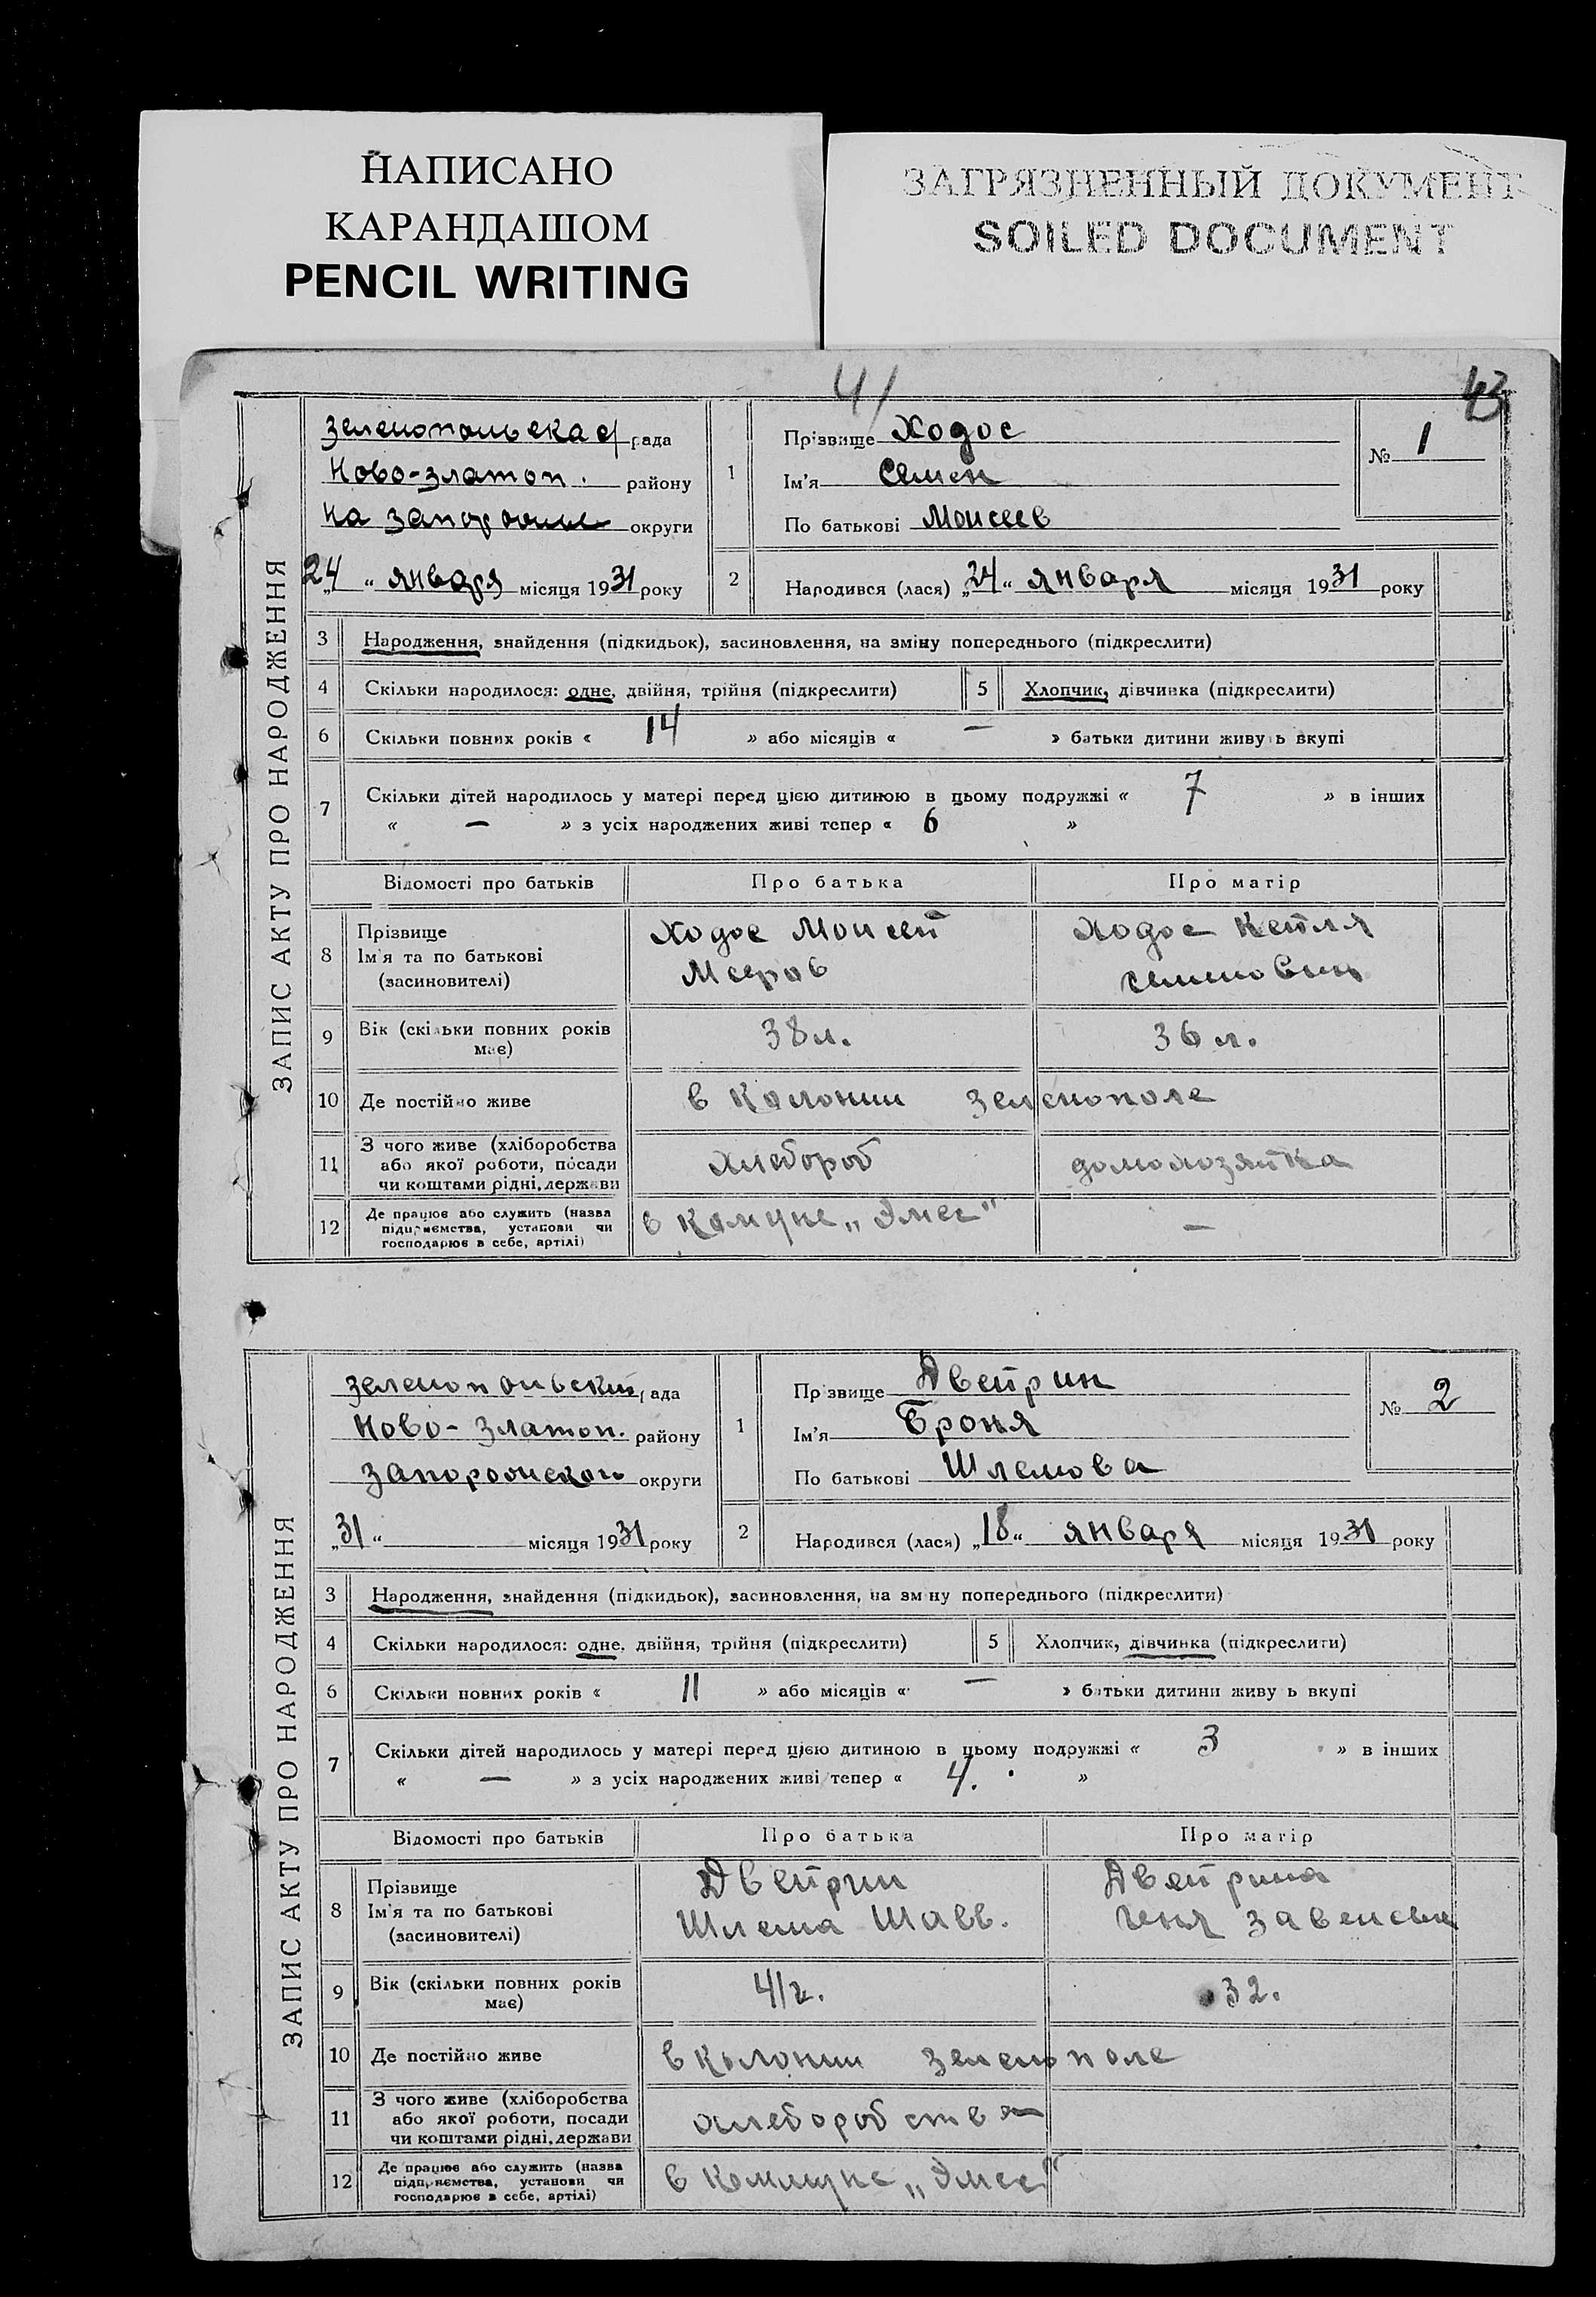 НАПИСАНО
КАРАНДАШОМ
PENCIL WRITING
ЗАГРЯЗНЕННЫЙ ДОКУМЕНТ
SOILED DOCUMENT
41
43
ЗАПИС АКТУ ПРО НАРОДЖЕННЯ
Зеленопольская рада
Ново-златоп. району
На округи
24 " января місяця 1931 року
1
Прізвище Ходос
Ім'я Семен
По батькові Моисеев
№ 1
2 Народився (лася) „24" января місяця 1931 року
3 Народження, знайдення (підкидьок), засиновлення, на зміну попереднього (підкреслити)
4 Скільки народилося: одне, двійня, трійня (підкреслити) 5 Хлопчик, дівчинка (підкреслити)
6 Скільки повних років « 14 » або місяців « — » батьки дитини живуть вкупі
7 Скільки дітей народилось у матері перед цією дитиною в цьому подружжі « 7 » в інших
« — » з усіх народжених живі тепер « 6 »
Відомості про батьків Про батька Про матір
8 Прізвище
Ім'я та по батькові
(засиновителі)
Ходос Моисей
Мееров
Ходос Кейля
Семеновна
9 Вік (скільки повних років має) 38 л. 36 л.
10 Де постійно живе в Колонии Зеленополе
11 З чого живе (хліборобства
або якої роботи, посади
чи коштами рідні, держави
Хлебороб домохозяйка
12 Де працює або служить (назва
підприємства, установи чи
господарює в себе, артілі)
в Комуне „Эмес" —
ЗАПИС АКТУ ПРО НАРОДЖЕННЯ
Зеленопольский рада
Ново-Златоп. району
Запорожского округи
„31" місяця 1931 року
1
Прізвище Двейрин
Ім'я Броня
По батькові Шлемова
№ 2
2 Народився (лася) „18" января місяця 1931 року
3 Народження, знайдення (підкидьок), засиновлення, на зміну попереднього (підкреслити)
4 Скільки народилося: одне, двійня, трійня (підкреслити) 5 Хлопчик, дівчинка (підкреслити)
6 Скільки повних років « 11 » або місяців « — » батьки дитини живуть вкупі
7 Скільки дітей народилось у матері перед цією дитиною в цьому подружжі « 3 » в інших
« — » з усіх народжених живі тепер « 4. »
Відомості про батьків Про батька Про матір
8 Прізвище
Ім'я та по батькові
(засиновителі)
Двейрин
Шлема Шавв.
Двейрина
Геня
9 Вік (скільки повних років має) 41 г. 32.
10 Де постійно живе в Колонии Зеленополе
11 З чого живе (хліборобства
або якої роботи, посади
чи коштами рідні, держави
хлеборобства
12 Де працює або служить (назва
підприємства, установи чи
господарює в себе, артілі)
в Коммуне „Эмес"